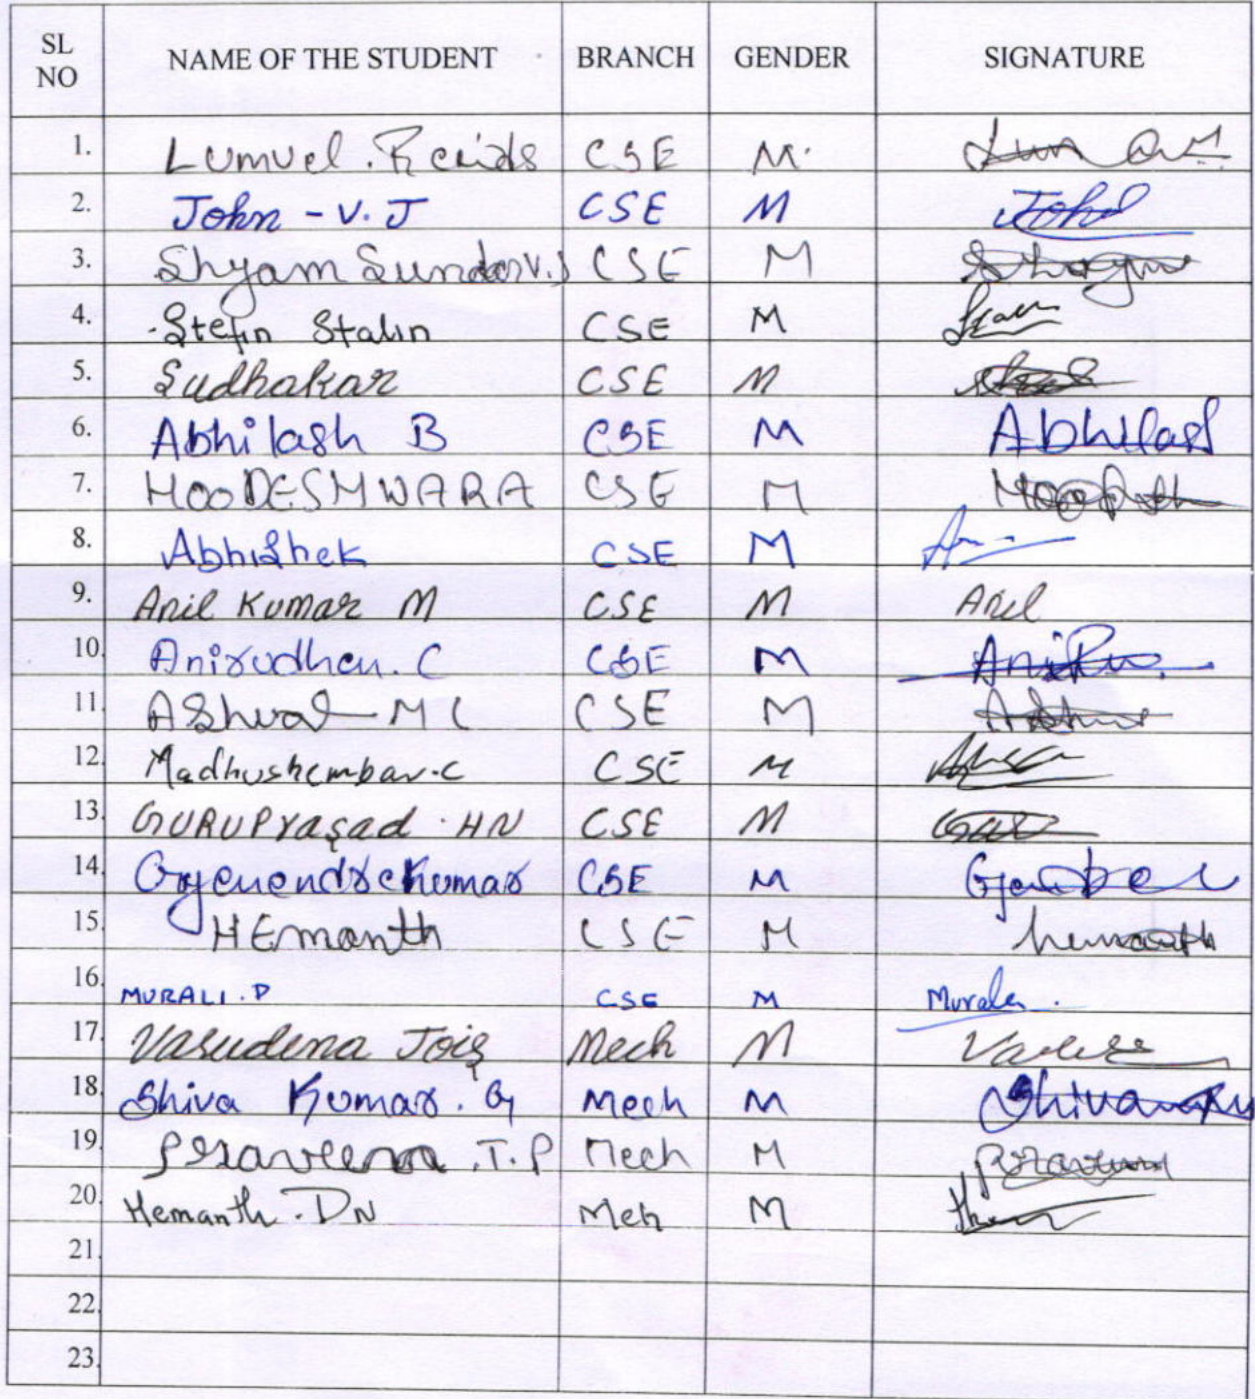 SL NO NAME OF THE STUDENT BRANCH GENDER SIGNATURE
1. Lumuel. CSE M
2. John - V. J CSE M John
3. Shyam Sundar V.J CSE M Shyam
4. Stefin Stalin CSE M
5. Sudhakar CSE M
6. Abhilash B CSE M Abhilash
7. MOODESHWARA CSE M
8. Abhishek CSE M
9. Anil Kumar M CSE M Anil
10. Anirudhan. C CSE M
11. AShwat M C CSE M
12. Madhushembar.c CSE M
13. GURUPrasad HN CSE M
14. CSE M
15. HEmanth CSE M hemanth
16. MURALI. D CSE M Murali.
17. Vasudeva Jois Mech M
18. Shiva Kumar. G Mech M
19. Praveena .T.P Mech M
20. Hemanth. DN Meh M
21.
22.
23.